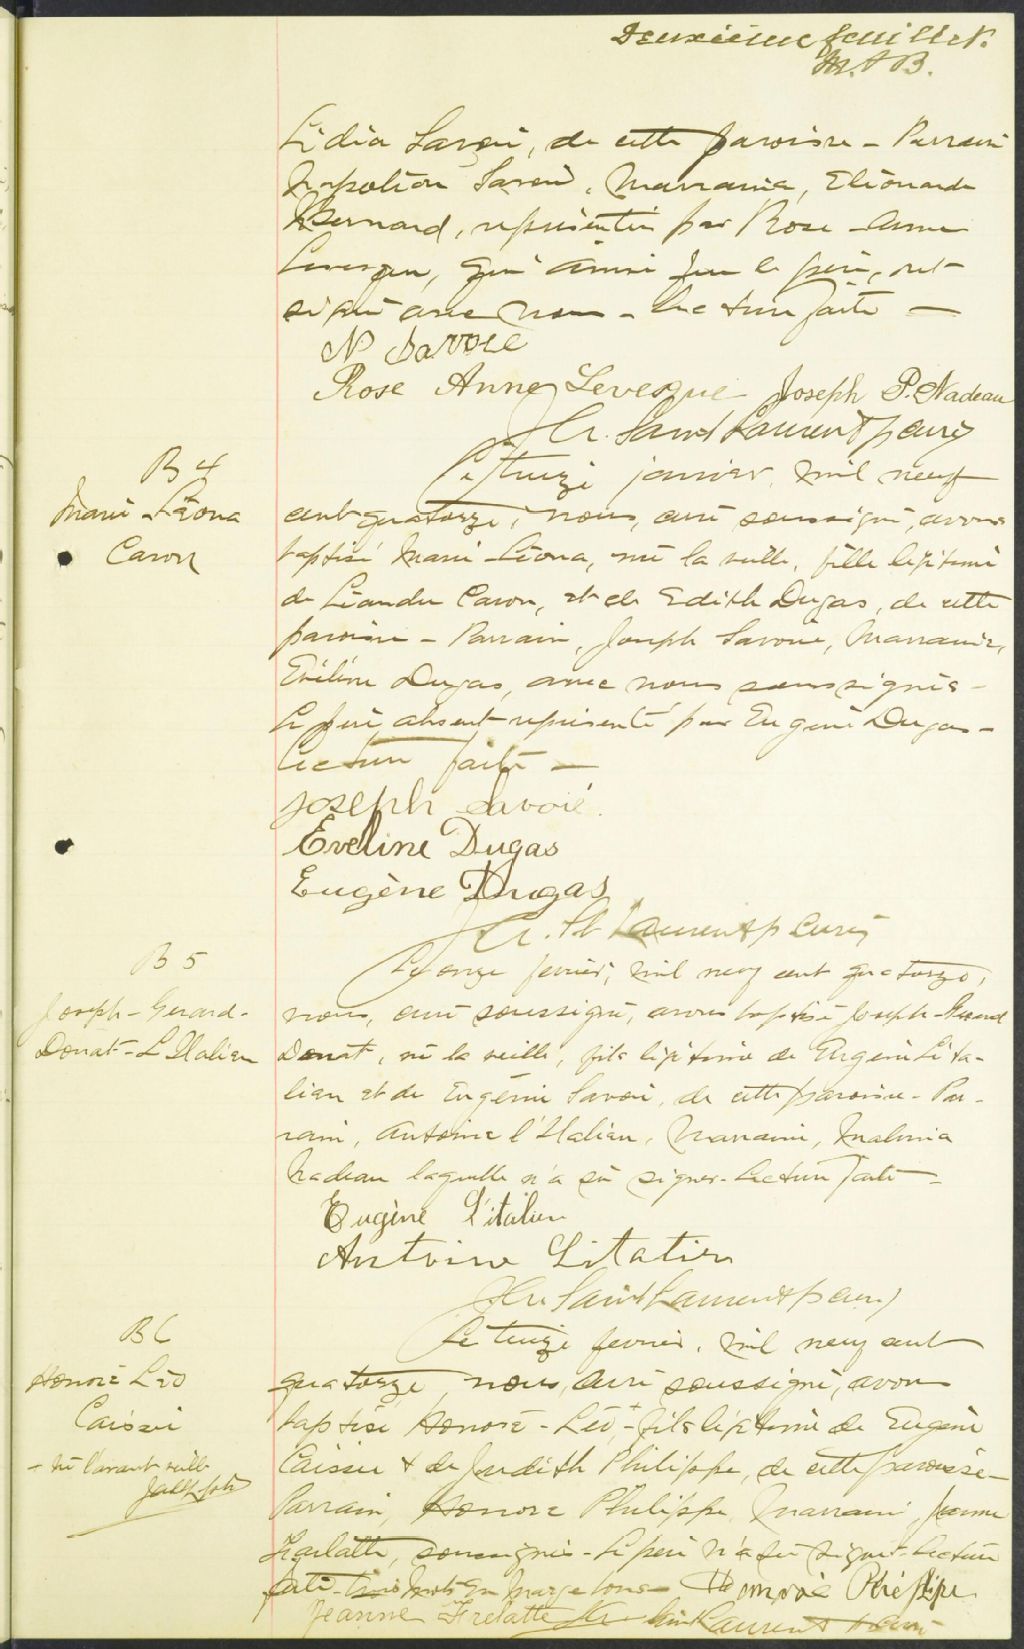 Deuxième feuillet.
Lidia Savoi, de cette paroisse - Parrain
Napoléon Savoi, Marraine, Eléonarde
Bernard, représentée par Rose-Anne
Levesque, qui ainsi que le père, ont
signé avec nous - Lecture faite -
N Savoie
Rose Anne Levesque Joseph P. Nadeau
Saint Laurent ptre curé
B 4
Marie Léona
Caron
Ce treize janvier, mil neuf
cent quatorze, nous, curé soussigné, avons
baptisé Marie-Léona, née la veille, fille légitime
de Léandre Caron, et de Edith Dugas, de cette
paroisse - Parrain, Joseph Savoie, Marraine,
Eveline Dugas, avec nous soussignés -
Le père absent représenté par Eugène Dugas -
Lecture faite -
Joseph Savoie
Eveline Dugas
Eugène Dugas
St Laurent ptre curé
B 5
Joseph-Gerard-
Donat-L'Italien
Ce onze février, mil neuf cent quatorze,
nous, curé soussigné, avons baptisé Joseph-Gerard
Donat, né la veille, fils légitime de Eugène Lita-
lien et de Eugénie Savoi, de cette paroisse - Par-
rain, Antoine l'Italien, Marraine, Malvina
Nadeau laquelle n'a su signer - Lecture faite -
Eugène L'italien
Antoine Litalien
Saint Laurent ptre curé
B 6
Honoré Léo
Caissie
- né l'avant veille
Ce treize février, mil neuf cent
quatorze, nous, curé soussigné, avons
baptisé Honoré-Léo,+-fils légitime de Eugène
Caissie & de Judith Philippe, de cette paroisse -
Parrain, Honoré Philippe, Marraine, Jeanne
Frelatte, soussignés - Le père n'a su signer - Lecture
faite - trois mots en marge bons - Honoré Philippe
Jeanne Frelatte Saint Laurent ptre curé